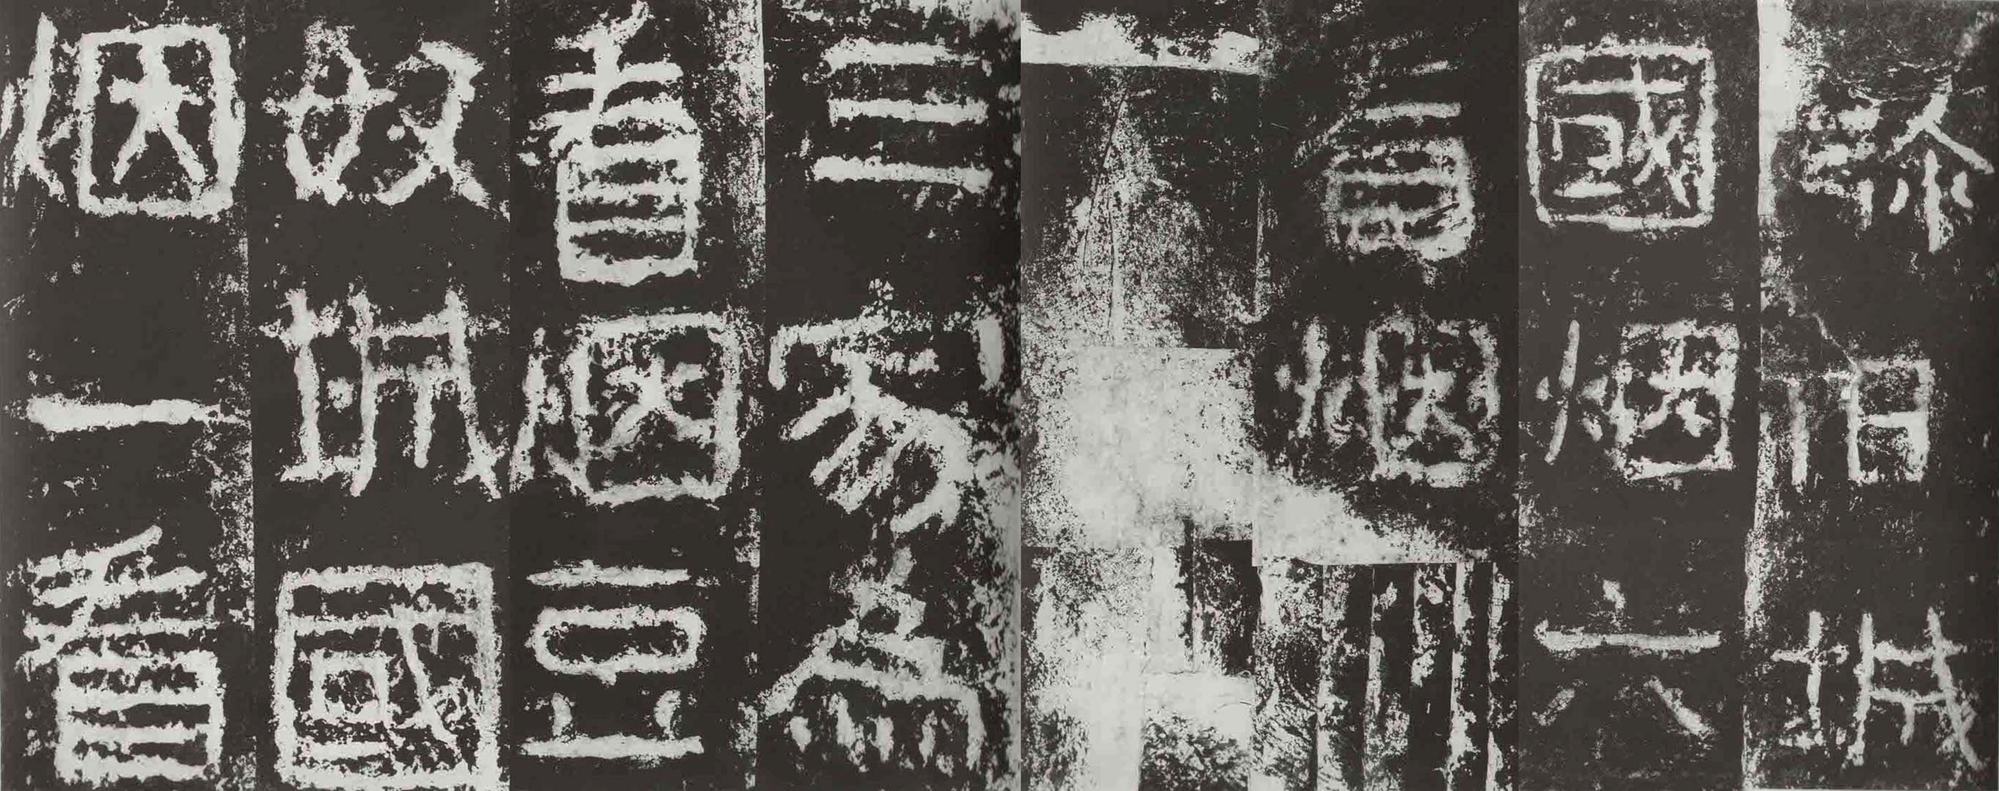 弥旧城
國烟六
看烟
三家為
看烟豆
奴城國
烟一看